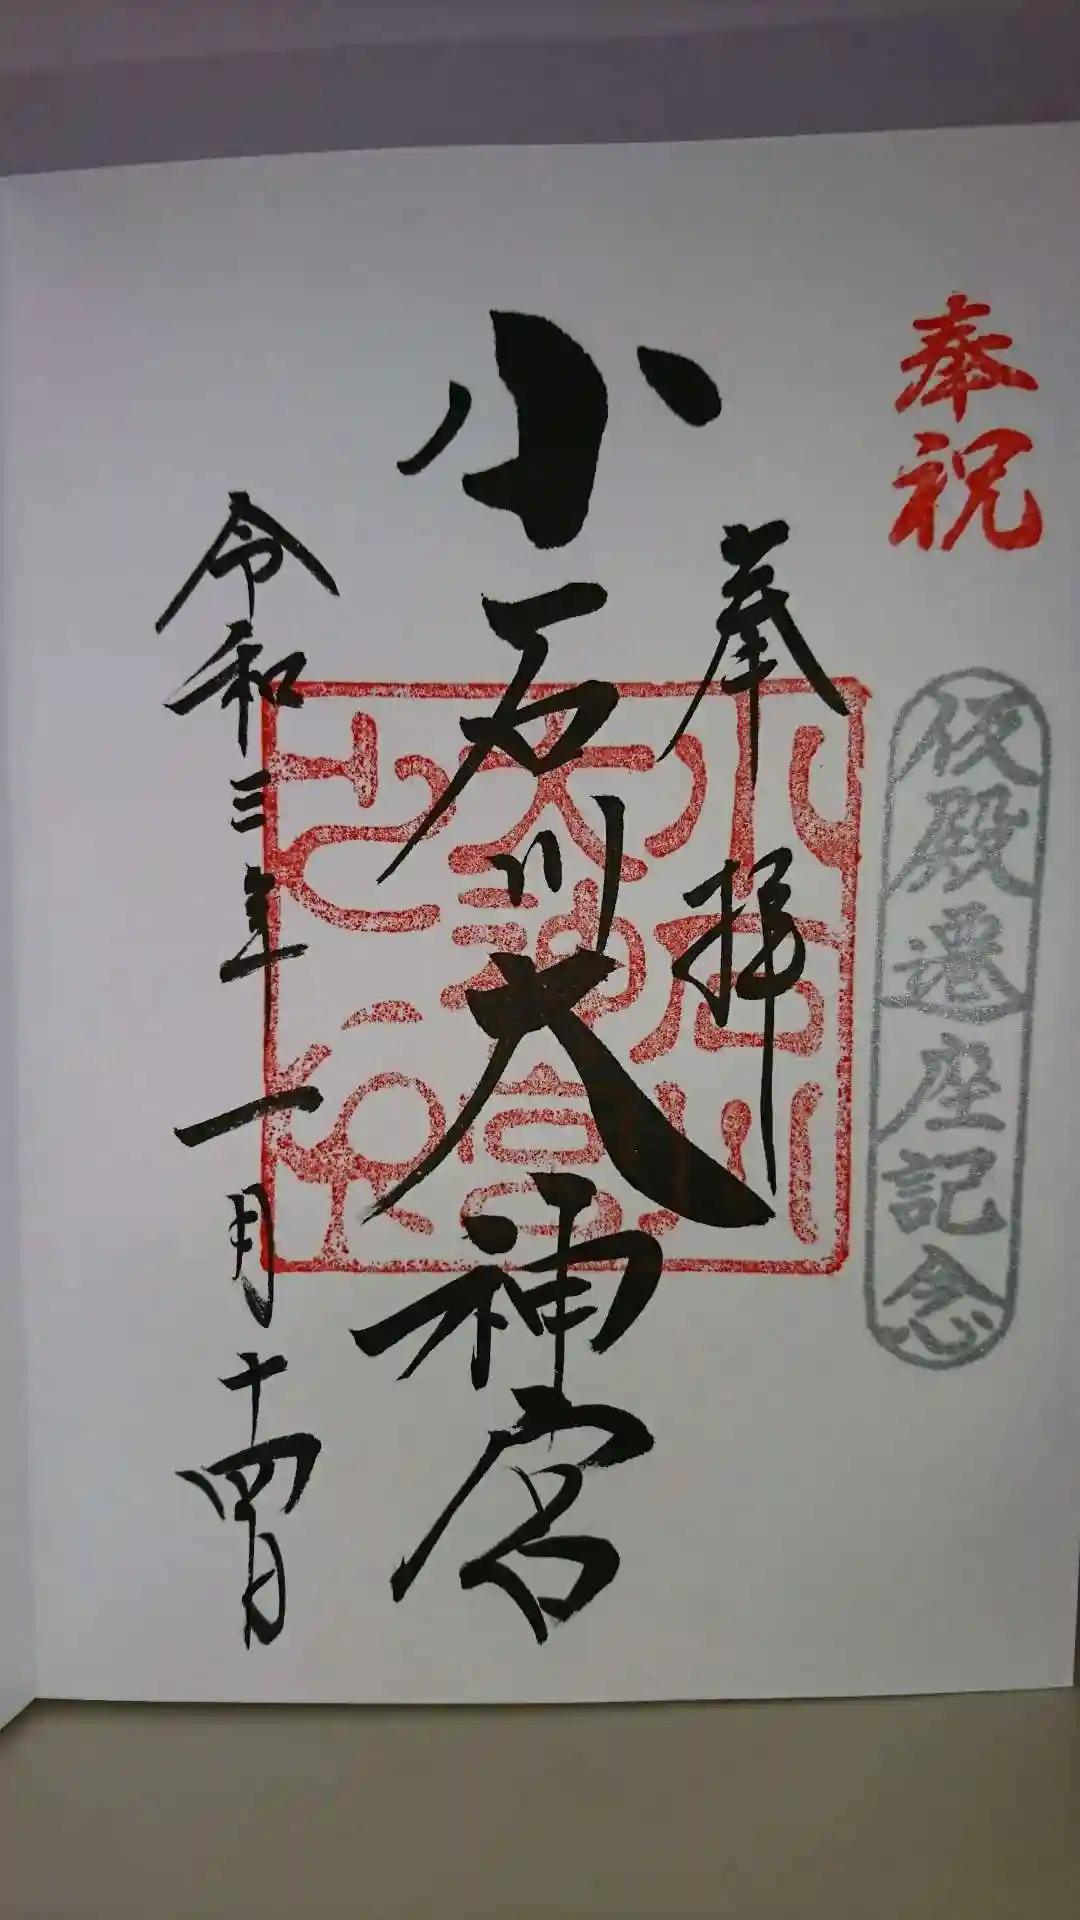 奉祝
仮殿遷座記念
奉拝
小石川大神宮
小石川
大神宮
之印
令和三年一月十四日